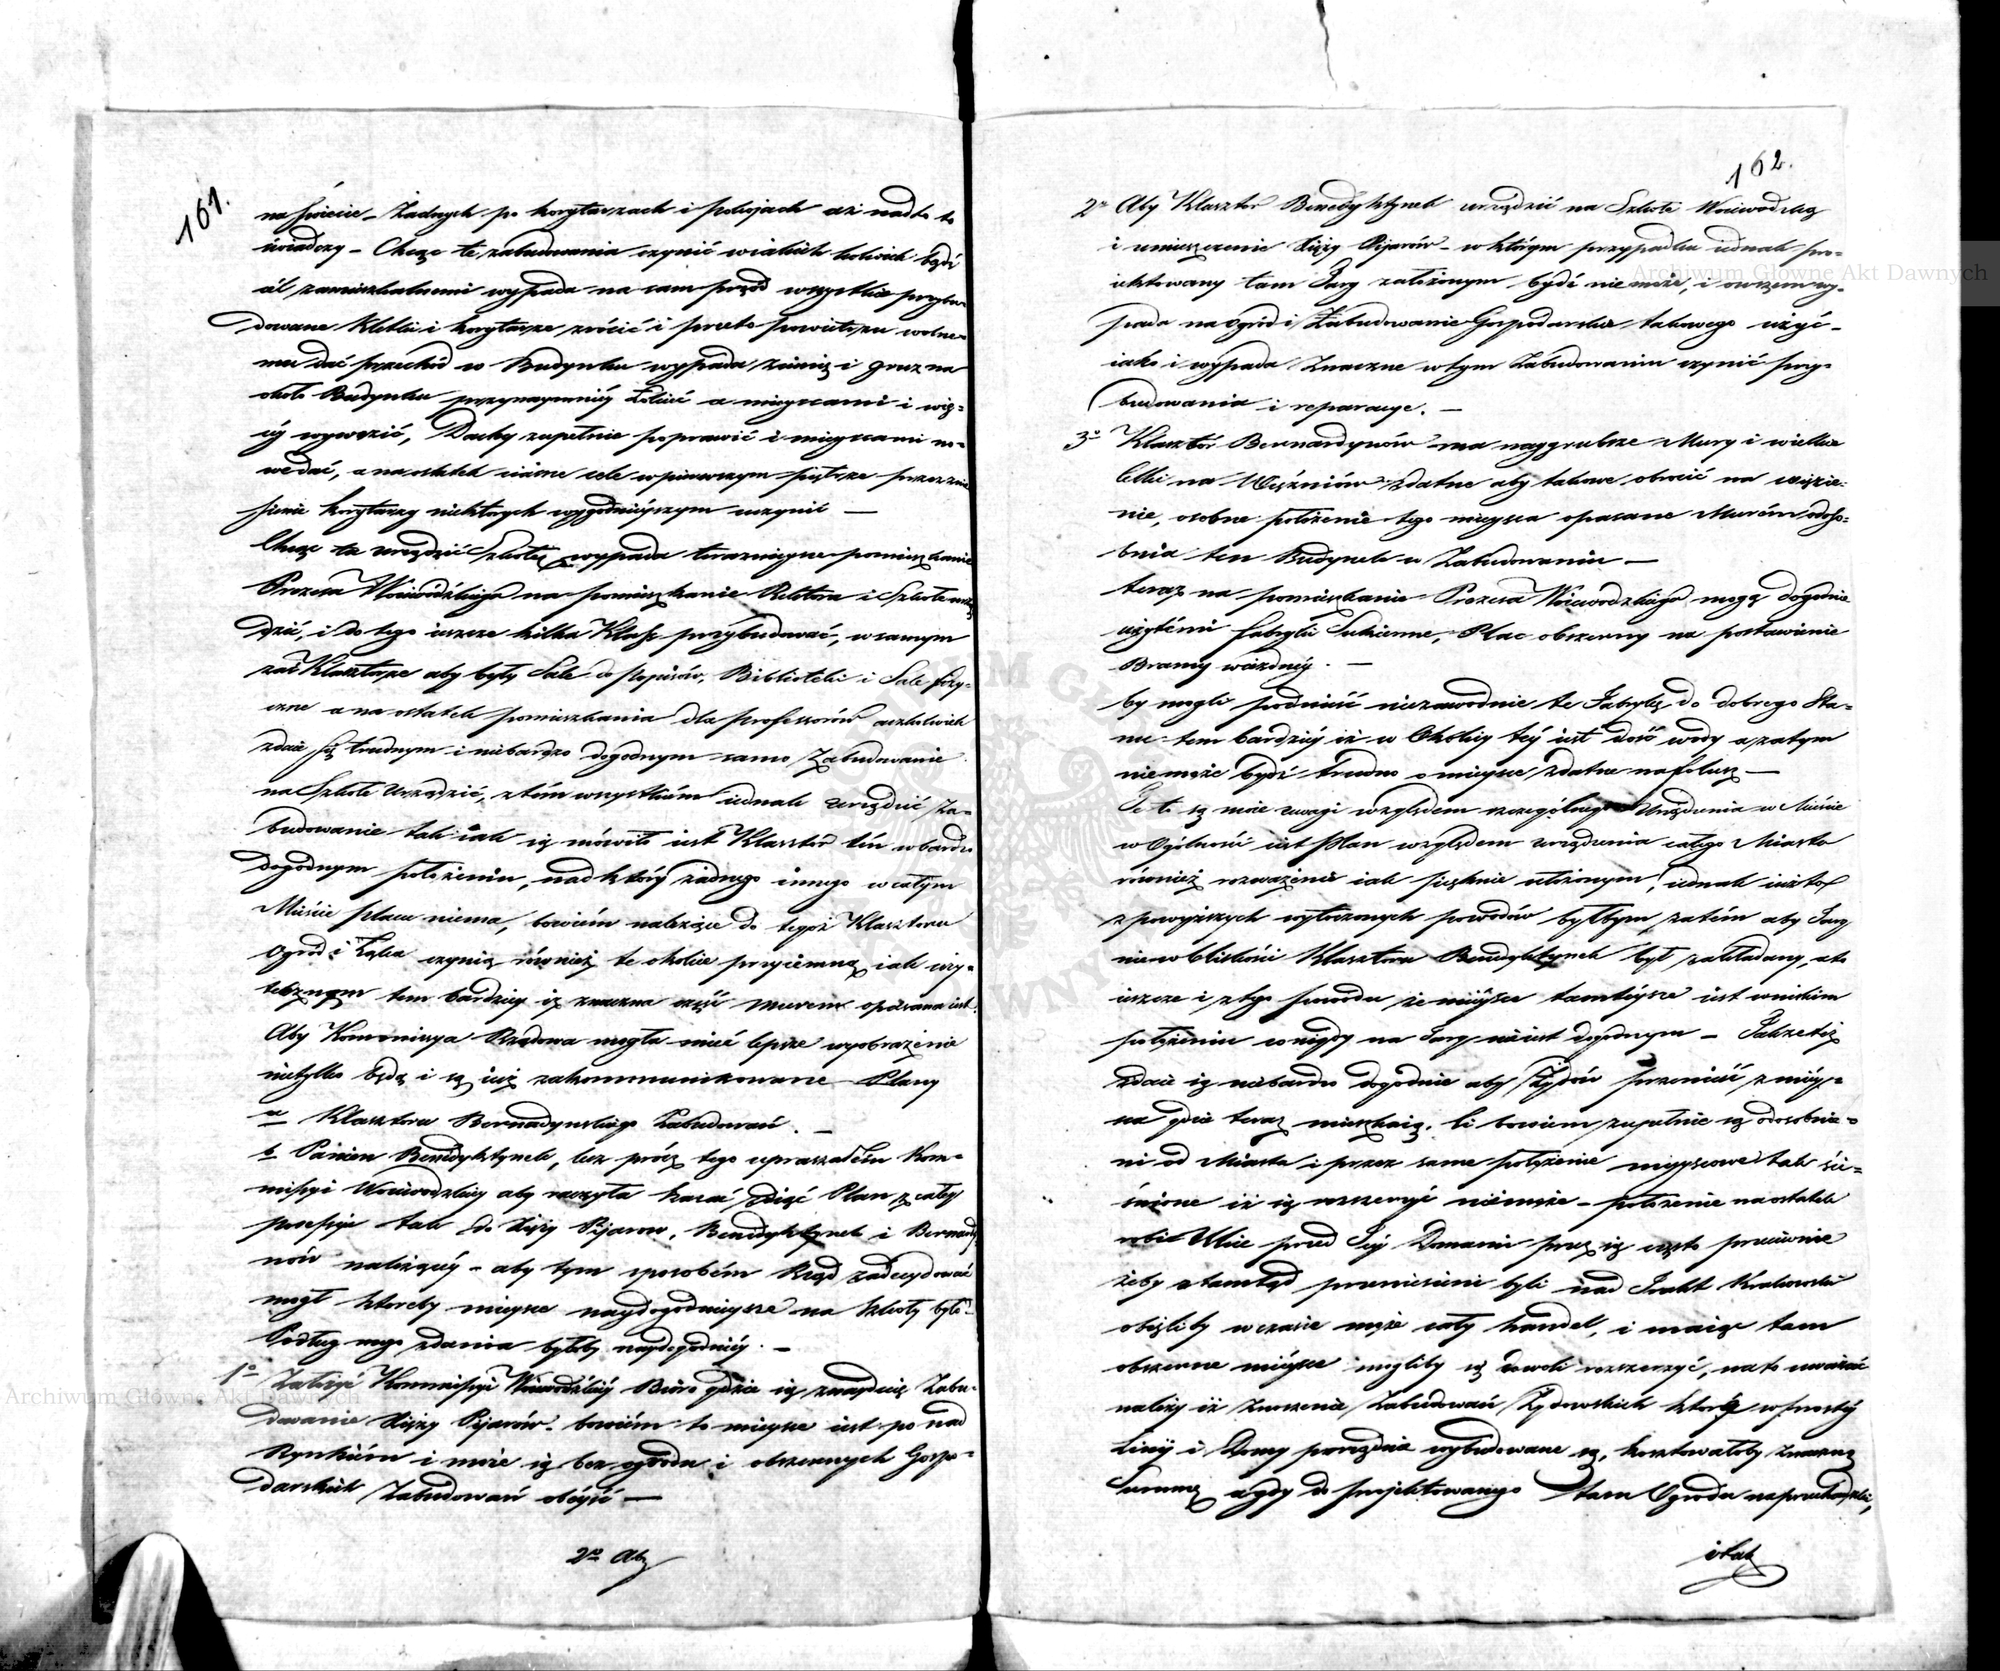 161.
na świecie - Żadnych po korytarzach i pokojach aż nadto to
świadczy - Chcąc te zabudowania czynić wiakich kolwiek bądź
zamieszkalnemi wypada na sam przód wszystkie przybu-
dowane Klitki i korytarze zrócić i przeto powietrzu wolne-
mu dać przechód w Budynku wypada ziemię i gruz na
około Budynku przynaymniéy Łokieć a mieyscami i wię-
céy wywozić, Dachy zupełnie poprawić i mieyscami no-
we dać, a na ostatek ciasne cele w pierwszym piętrze przez znie-
sienie korytarzy niektórych wygodnieyszym uczynić —
Chcąc tu urządzić Szkołę wypada teraznieysze pomieszkanie
Prezesa Woiewódzkiego na pomieszkanie Rektora i Szkołe urzą-
dzić, i do tego ieszcze kilka Klass przybudować, w samym
zaś Klasztorze aby były Sale do popisów, Biblioteki i Sale fizy-
czne a na ostatek pomieszkania dla professorów aczkolwiek
zdaie się trudnym i niebardzo dogodnym samo Zabudowanie
na Szkołe Urządzić, z tém wszystkiém iednak urządzić za-
budowanie tak iak się mówiło iest Klasztór tén w bardzo
dogodnym położeniu, nad który żadnego innego w całym
Mieście placu niema, bowiém należące do tegoż Klasztoru
Ogród i Łąka czynią również te okolice przyiemną iak uży-
tecznym tem bardziey iż znaczna część murem opasana iest.
Aby Kommissya Rządowa mogła mieć lepsze wyobrażenie
nietylko będą i są iuż zakommunikowane Plany
a Klasztoru Bernadynskiego Zabudowań. —
b Panien Benedyktynek, lecz prócz tego upraszałem Kom-
missyi Woiewódzkiey aby raczyła kazać zdiąć Plan z całey
possessyi tak do Xięży Pijarow, Benedyktynek i Bernady-
nów należącéy - aby tym sposobém Rząd zadecydować
mogł ktoreby mieysce naydogodnieysze na Szkoły było -
Podług mego zdania byłoby naydogodniéy. —
1o Zaleyć Kommissyi Woiewódzkiéy Biuro gdzie się znayduią Zabu-
dowanie Xięży Pijarów - bowiém to mieysce iest po nad
Rynkiém i może się bez ogrodu i obszernych Gospo-
darskich Zabudowań obéyść —
2o Aby
162.
2o Aby Klasztor Benedyktynek urządzić na Szkołe Woiewodzką
i umieszczenie Xięży Pijarów - w którym przypadku iednak pro-
iektowany tam Targ założonym bydź nie może, i owszem wy-
pada na Ogród i Zabudowanie Gospodarskie takowego użyć -
iako i wypada Znaczne w tym Zabudowaniu czynić przy-
budowania i reparacye. —
3o Klasztór Bernardynów ma naygrubsze Mury i wielkie
Celki na Więźniów zdatne aby takowe obrócić na więzie-
nie, osobne położenie tego mieysca opasane Murém odoso-
bnia ten Budynek u Zabudowania —
teraz na pomieszkanie Prezesa Woiewodzkiego mogą dogodnie
użytémi Fabryki Sukienne, Plac obszerny na postawienie
Bramy wiazdnéy. —
by mogli podnieść niezawodnie te Fabrykę do dobrego Sta-
nu tem bardziéy iż w Okolicy téy iest dość wody a zatym
nie może bydź trudno o mieysce zdatne na folusz —
Te to są moie uwagi względem szczególnego Urządzenia w Mieście
w Ogólności iest Plan względem urządzenia całego Miasta
również rozważenie iak pięknie ułożonym, iednak iużto
z powyższych wytoczonych powodów byłbym zatém aby Targ
nie w bliskości Klasztoru Benedyktynek był zakładany, ato
ieszcze i z tego powodu że mieysce tamteysze iest w niskim
położeniu co nigdy na Targ nie iest dogodnym - Takżeteż
zdaie się niebardzo dogodnie aby Żydów przenieść z miey-
sca gdzie teraz mieszkaią. Ci bowiem zupełnie są odosobnie-
ni od Miasta i przez same położenie mieyscowe tak ści-
śnione iż się rozszerzyć nie może - położenie na ostatek
robić Ulice przed Jéy Domami przez się często przeciwnie
żeby z tamtąd przeniesieni byli nad Trakt Krakowski
obięliby w czasie może cały handel, i maiąc tam
obszerne mieysce mogliby się dowoli rozszerzyć, na to uważać
należy iż Znoszenia Zabudowań Żydowskich które w prostéy
Linij i Domy porządnie wybudowane są, kosztowałoby znaczną
Summę a gdy do projektowanego Stara Ogrodu naprzeciwko,
i tak